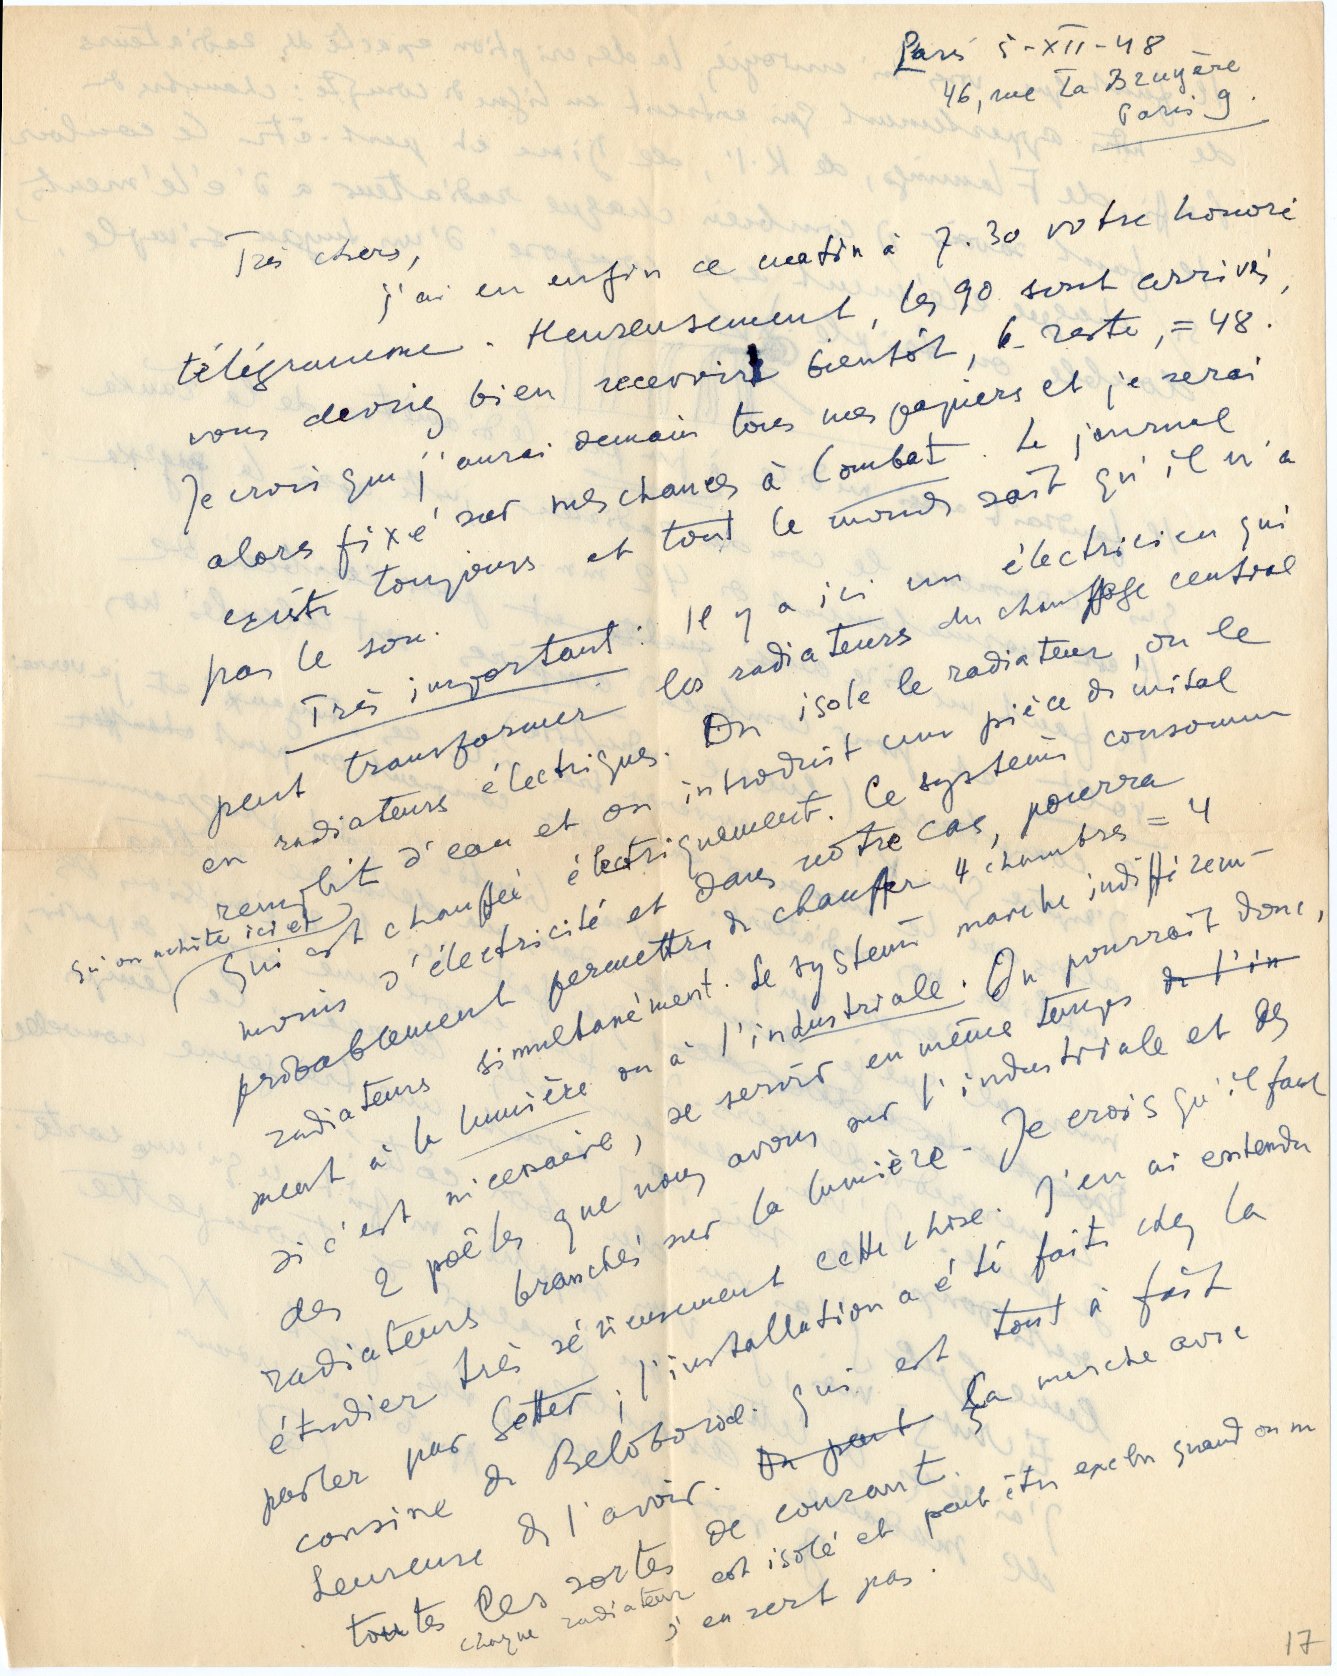 Paris 5-XII-48
46, rue La Bruyère
Paris 9.
Très chers,
j'ai eu enfin ce matin à 7.30 votre honoré
télégramme. Heureusement, les 90 sont arrivés,
vous devriez bien recevoir bientôt, le reste, = 48.
Je crois que j'aurai demain tous mes papiers et je serai
alors fixé sur mes chances à Combat. Le journal
existe toujours et tout le monde sait qu'il n'a
pas le sou.
Très important: Il y a ici un électricien qui
peut transformer les radiateurs du chauffage central
en radiateurs électriques. On isole le radiateur, on le
remplit d'eau et on introduit une pièce de métal
qu'on achète ici et
qui est chauffé électriquement. Ce système consomme
moins d'électricité et dans notre cas, pourra
probablement permettre de chauffer 4 chambres = 4
radiateurs simultanément. Le système marche indifférem-
ment à la lumière ou à l'industriale. On pourrait donc,
si c'est nécessaire, se servir en même temps de l'in
des 2 poêles que nous avons sur l'industriale et des
radiateurs branchés sur la lumière. Je crois qu'il faut
étudier très sérieusement cette chose. J'en ai entendu
parler par Setter; l'installation a été faite chez la
cousine de Beloborod. qui est tout à fait
heureuse de l'avoir. On peut Ça marche avec
toutes les sortes de courant.
chaque radiateur est isolé et peut être exclu quand on ne
s'en sert pas.
17